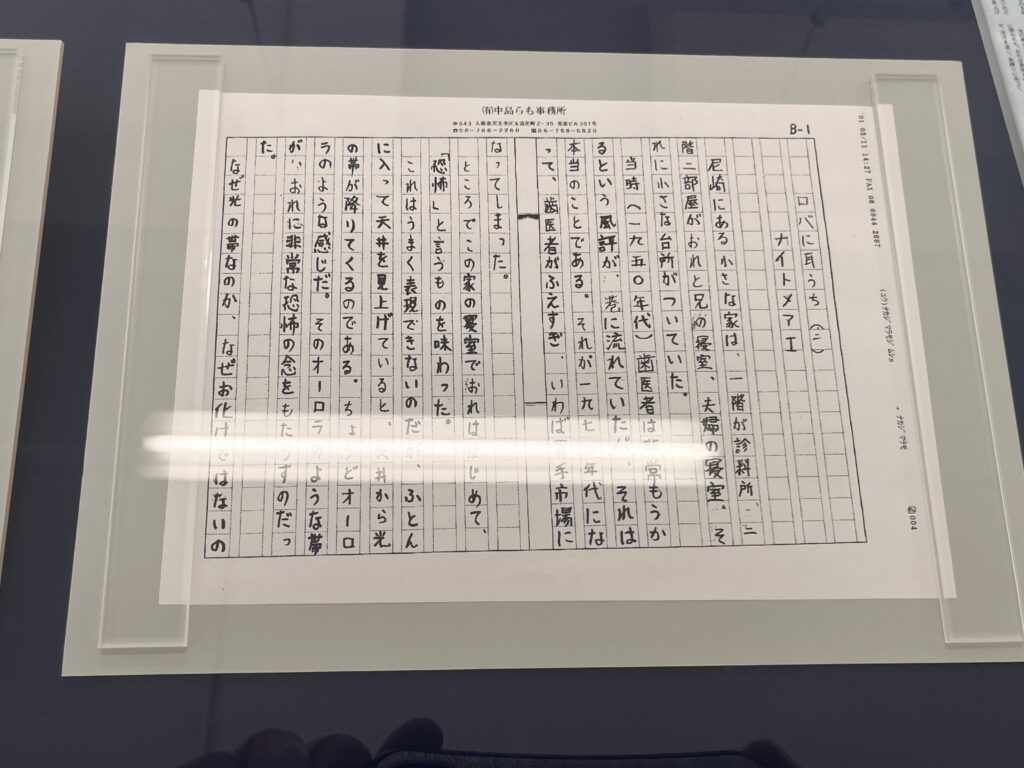 ㈲中島らも事務所
B-1
ロバに耳うち(二)
ナイトメアエ
尼崎にある小さな家は、一階が診科所、二
階二部屋がおれと兄の寝室、夫婦の寝室。そ
れに小さな台所がついていた。
当時(一九五〇年代)歯医者は非常もうか
るという風評が、巷に流れていたが、それは
本当のことである。それが一九七〇年代にな
って、歯医者がふえすぎ、いわば手市場に
なってしまった。
ところでこの家の寝室でおれははじめて、
「恐怖」と言うものを味わった。
これはうまく表現できないのだが、ふとん
に入って天井を見上げていると、天井から光
の帯が降りてくるのである。ちょうどオーロ
ラのような感じだ。そのオーロラのような帯
が、おれに非常な恐怖の念をもたらすのだっ
た。
なぜ光の帯なのか、なぜお化けではないの
'01 08/11 14:27 FAX 06 6944 2697
004